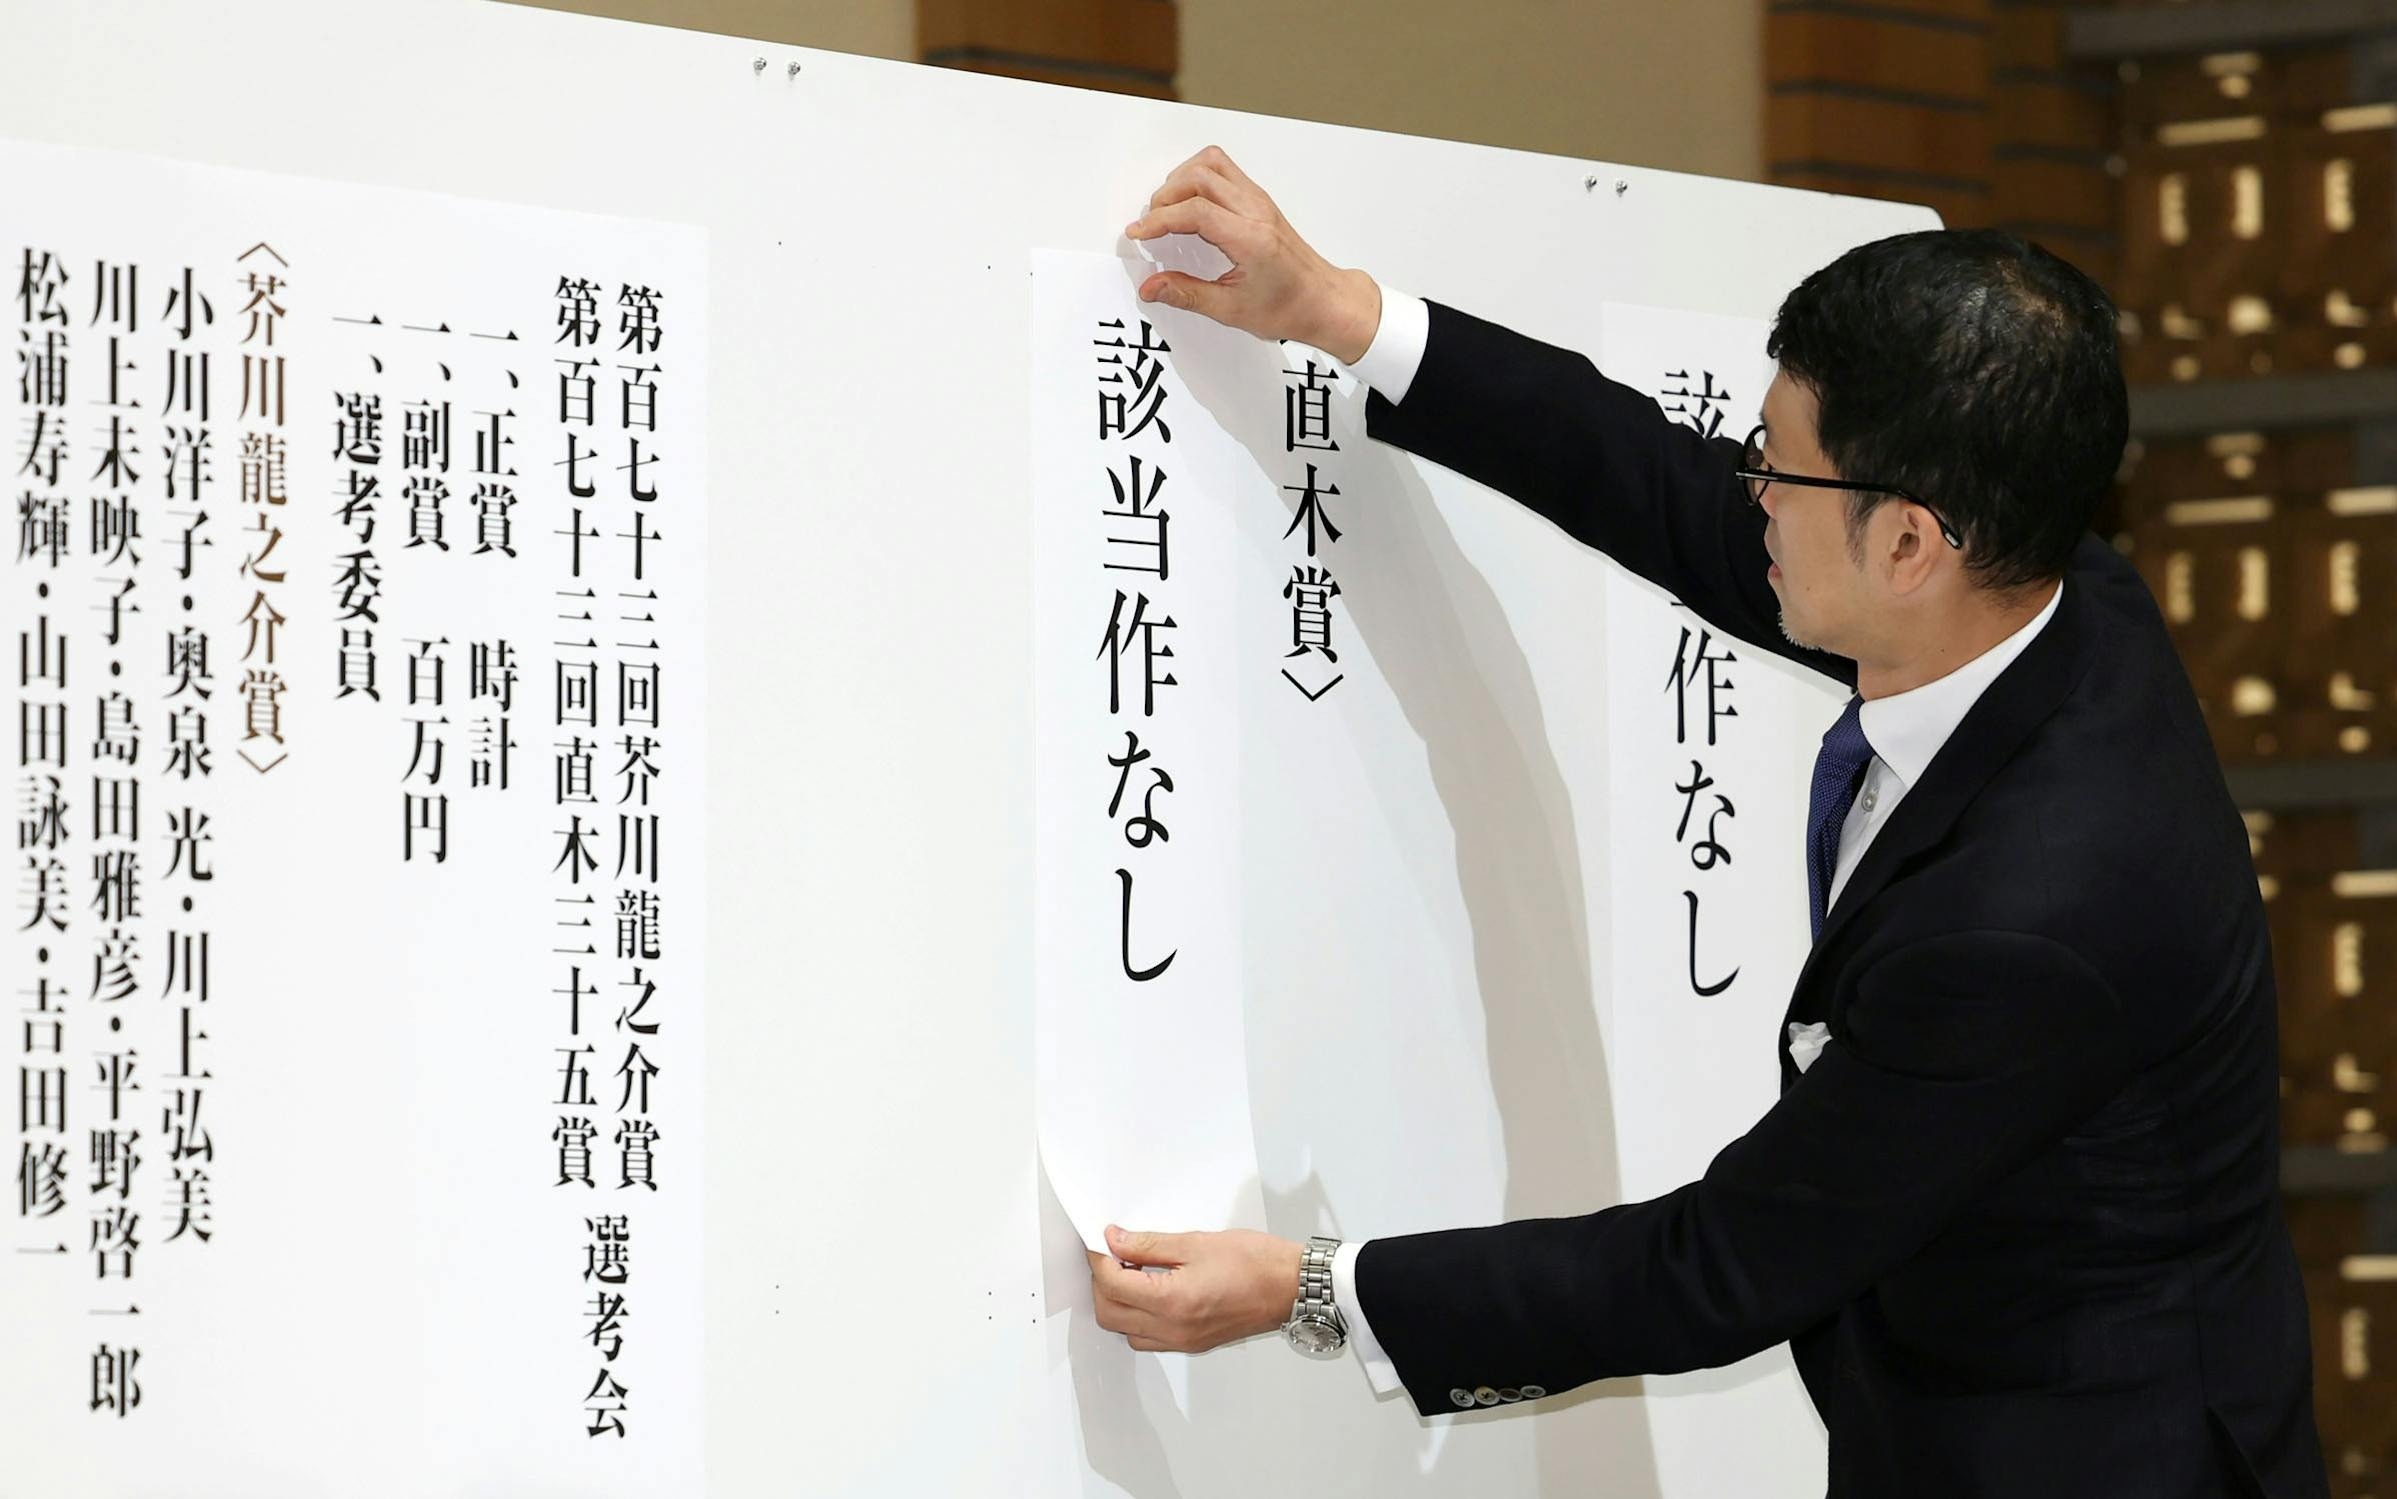 該作なし
直木賞〉
該当作なし
第百七十三回芥川龍之介賞
第百七十三回直木三十五賞
選考会
一、正賞 時計
一、副賞 百万円
一、選考委員
〈芥川龍之介賞〉
小川洋子・奥泉 光・川上弘美
川上未映子・島田雅彦・平野啓一郎
松浦寿輝・山田詠美・吉田修一